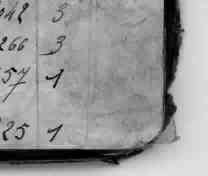 042 3
266 3
57 1
25 1